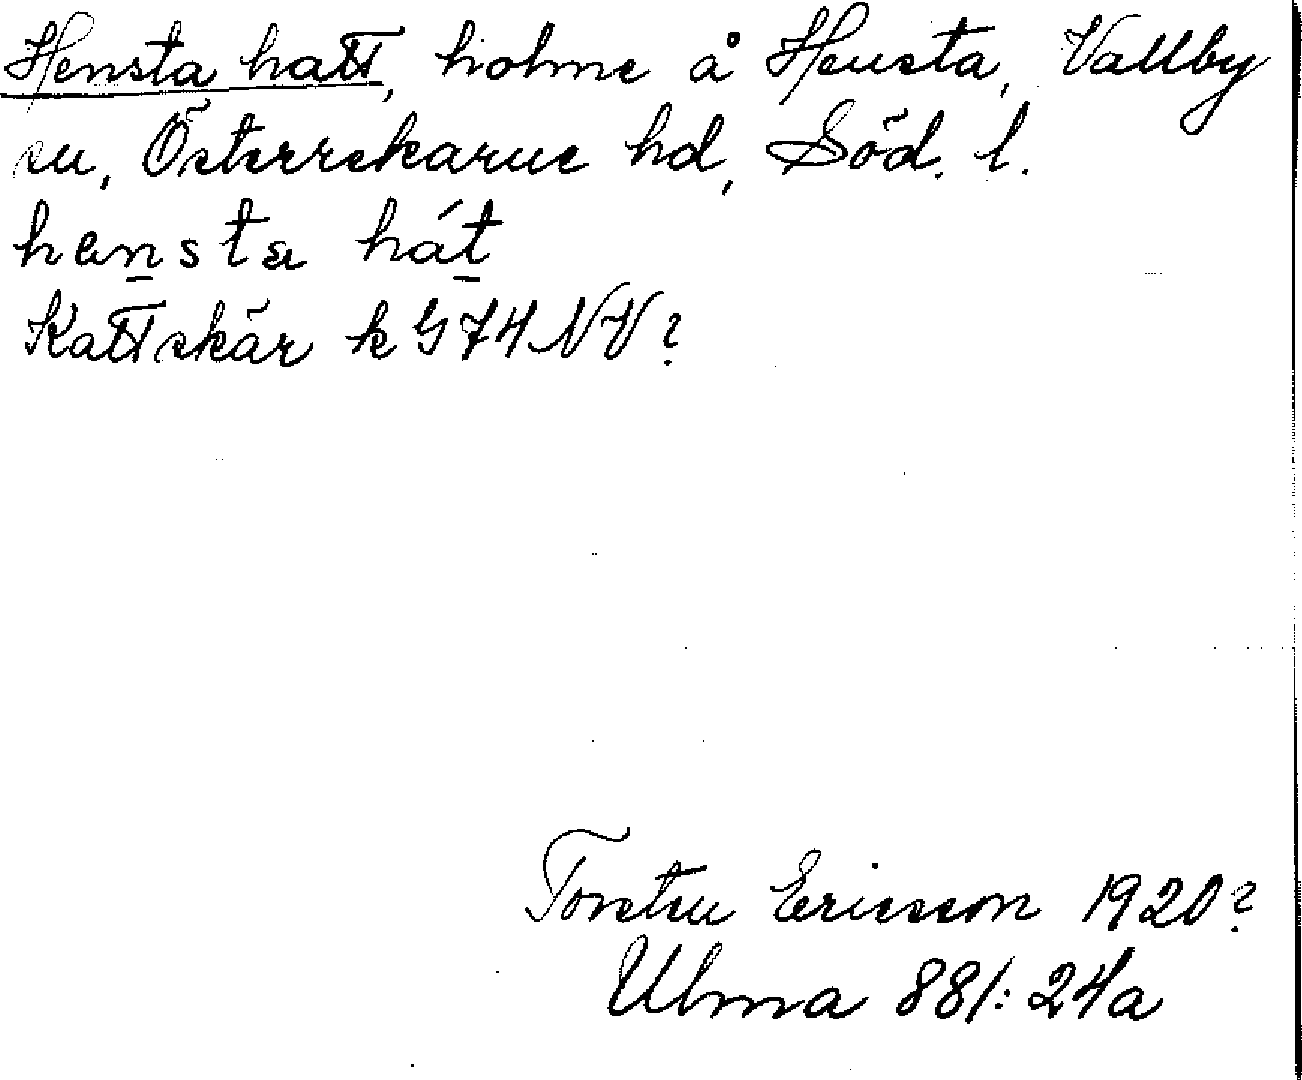 Hensta hatt, holme å Hensta, Vallby
sn, Österrekarne hd, Söd. l.
hensta hát
Kattskär k G74NV?
Torsten Ericsson 1920?
Ulma 881:24a